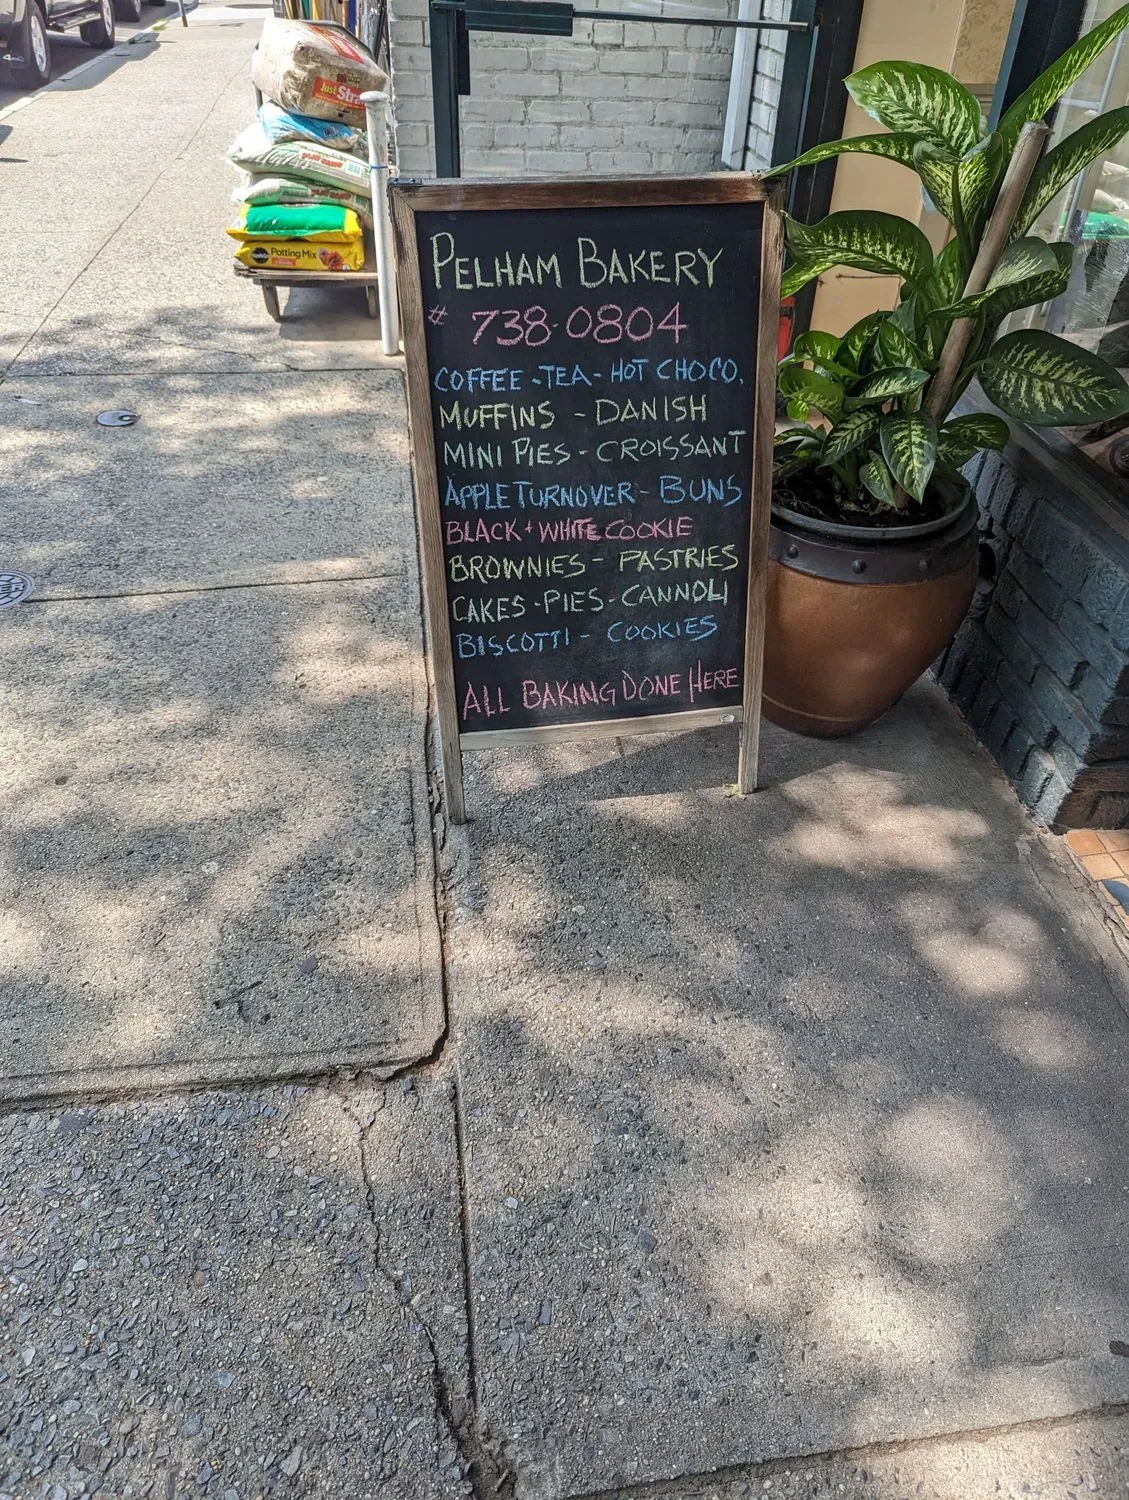 Just Stra
PLAY SAND
Potting Mix
PELHAM BAKERY
# 738-0804
COFFEE - TEA - HOT CHOCO.
MUFFINS - DANISH
MINI PIES - CROISSANT
APPLE TURNOVER - BUNS
BLACK + WHITE COOKIE
BROWNIES - PASTRIES
CAKES - PIES - CANNOLI
BISCOTTI - COOKIES
ALL BAKING DONE HERE